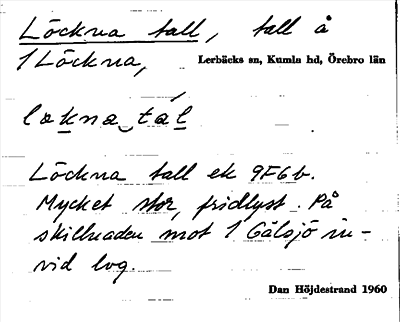 Löckna tall, tall å
1 Löckna, Lerbäcks sn, Kumla hd, Örebro län
løkna tál
Löckna tall ek 9F6b.
Mycket stor, fridlyst. På
skillnaden mot 1 Gälsjö in-
vid lvg.
Dan Höjdestrand 1960